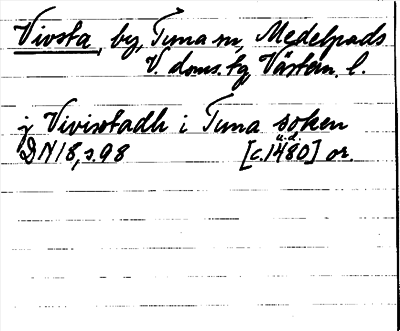 Vivsta, by, Tuna sn, Medelpads
V. doms. tg Västern. l.
j Vivistadh i Tuna soken
u.d.
DN 18, s. 98 [c. 1480] or.